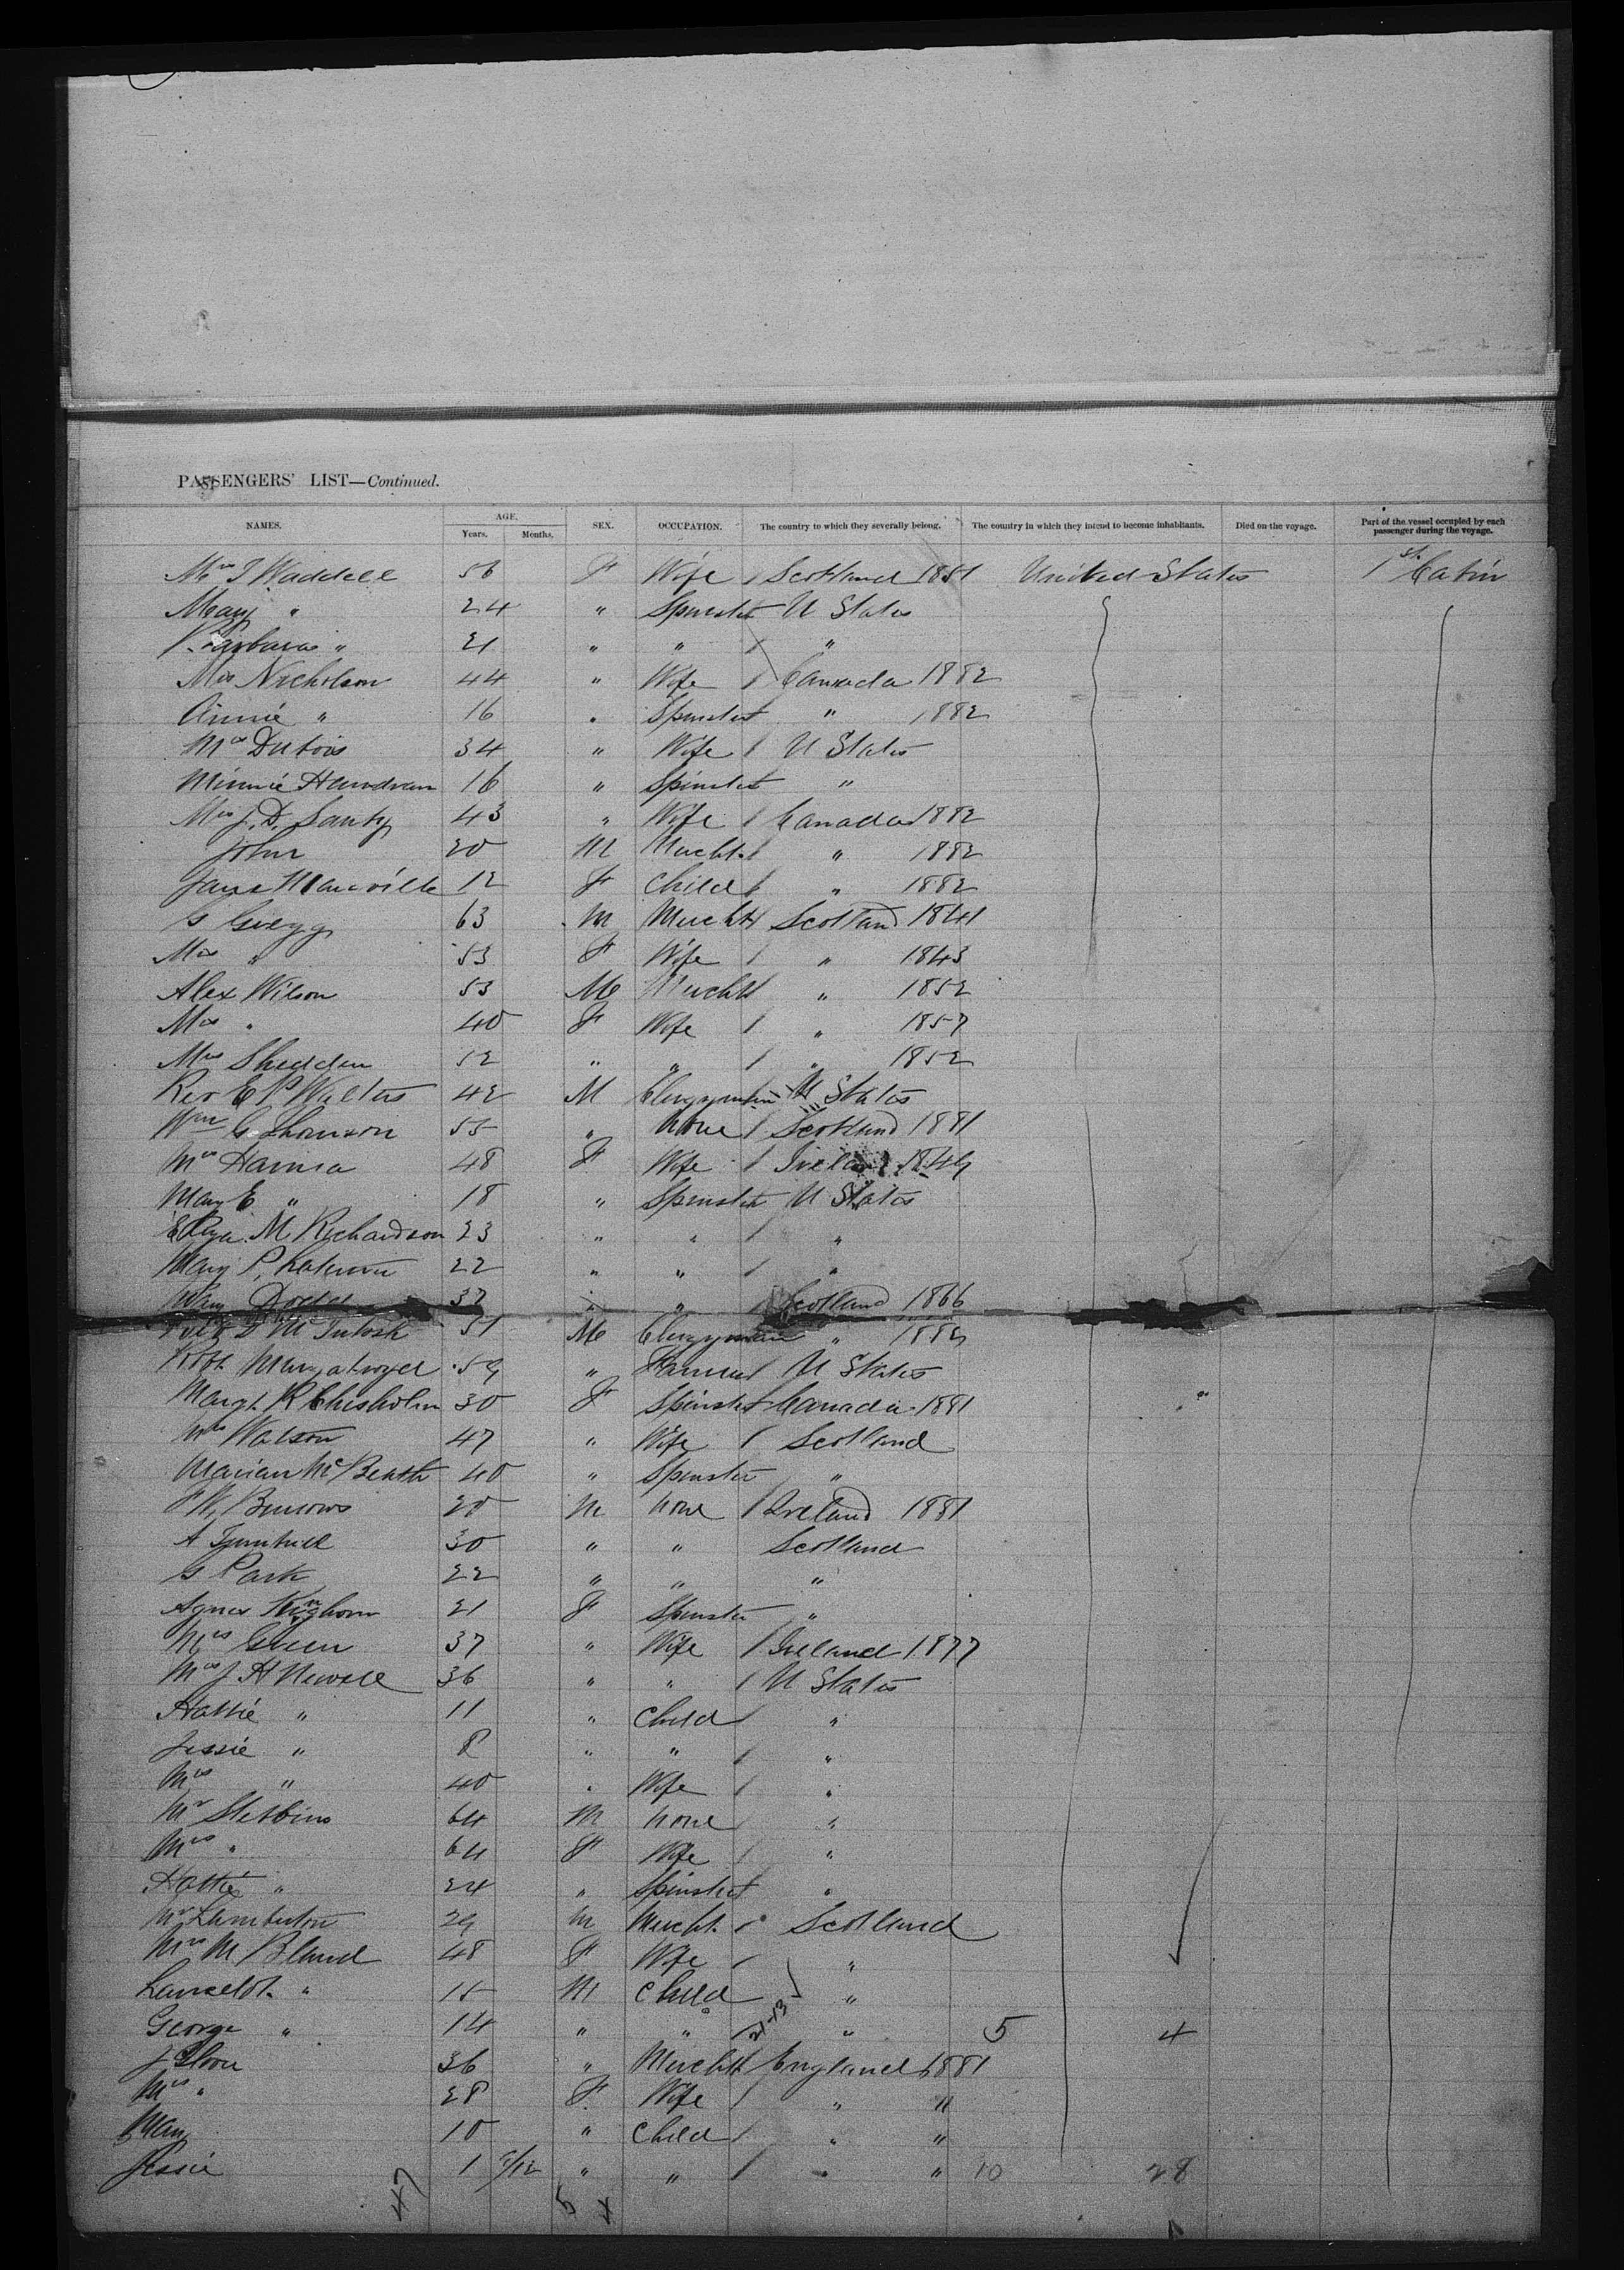 PASSENGERS' LIST—Continued.
NAMES. AGE. Years. Months. SEX. OCCUPATION. The country to which they severally belong. The country in which they intend to become inhabitants. Died on the voyage. Part of the vessel occupied by each passenger during the voyage.
Mrs J Waddell 56 F Wife / Scotland 1851 United States 1st Cabin
Mary " 24 " Spinster U States
Barbara " 21 " " / "
Mrs Nicholson 44 " Wife / Canada 1882
Annie " 16 " Spinster " 1882
Mrs Dubois 34 " Wife / U States
Minnie 16 " Spinster "
Mrs J. D. 43 " Wife / Canada 1882
John 20 M Mercht / " 1882
12 F Child / " 1882
G Gregg 63 M Mercht / Scotland 1841
Mrs " 53 F Wife / " 1843
Alex Wilson 53 M Mercht / " 1852
Mrs " 40 F Wife / " 1857
Mrs Shedden 52 " " / " 1852
Rev E P Walters 42 M Clergyman U States
Wm G Thomson 55 " None / Scotland 1881
Mrs Hanna 48 F Wife / Ireland 1849
Mary E " 18 " Spinster U States
Eliza M Richardson 23 " " / "
Mary P. 22 " " / "
37 " " Scotland 1866
D McIntosh 31 M Clergyman "
Robt Murgatroyd 59 " Farmer / U States
Margt R Chisholm 30 F Spinster Canada 1881 "
Mrs Watson 47 " Wife / Scotland
Marian McBeath 40 " Spinster "
F W Burrows 20 M None / Ireland 1881
A Turnbull 30 " " Scotland
G Park 22 " " "
Agnes Kinghorn 21 F Spinster "
Mrs Green 37 " Wife / Ireland 1877
Mrs J H Newell 36 " " / U States
Hattie " 11 " Child / "
Jessie " 8 " " / "
Mrs " 40 " Wife / "
Mr Stebbins 64 M None / "
Mrs " 64 F Wife / "
Hattie " 24 " Spinster "
Mr Lamberton 29 M Mercht. / Scotland
Mrs M Bland 48 F Wife / "
Lancelot " 15 M Child "
George " 14 " " 21-13 " 5 4
J Sloan 36 " Mercht / England 1881
Mrs " 28 F Wife / " "
Mary 10 " Child / " "
Jessie 1 " " / " " 10 28
47 5 4